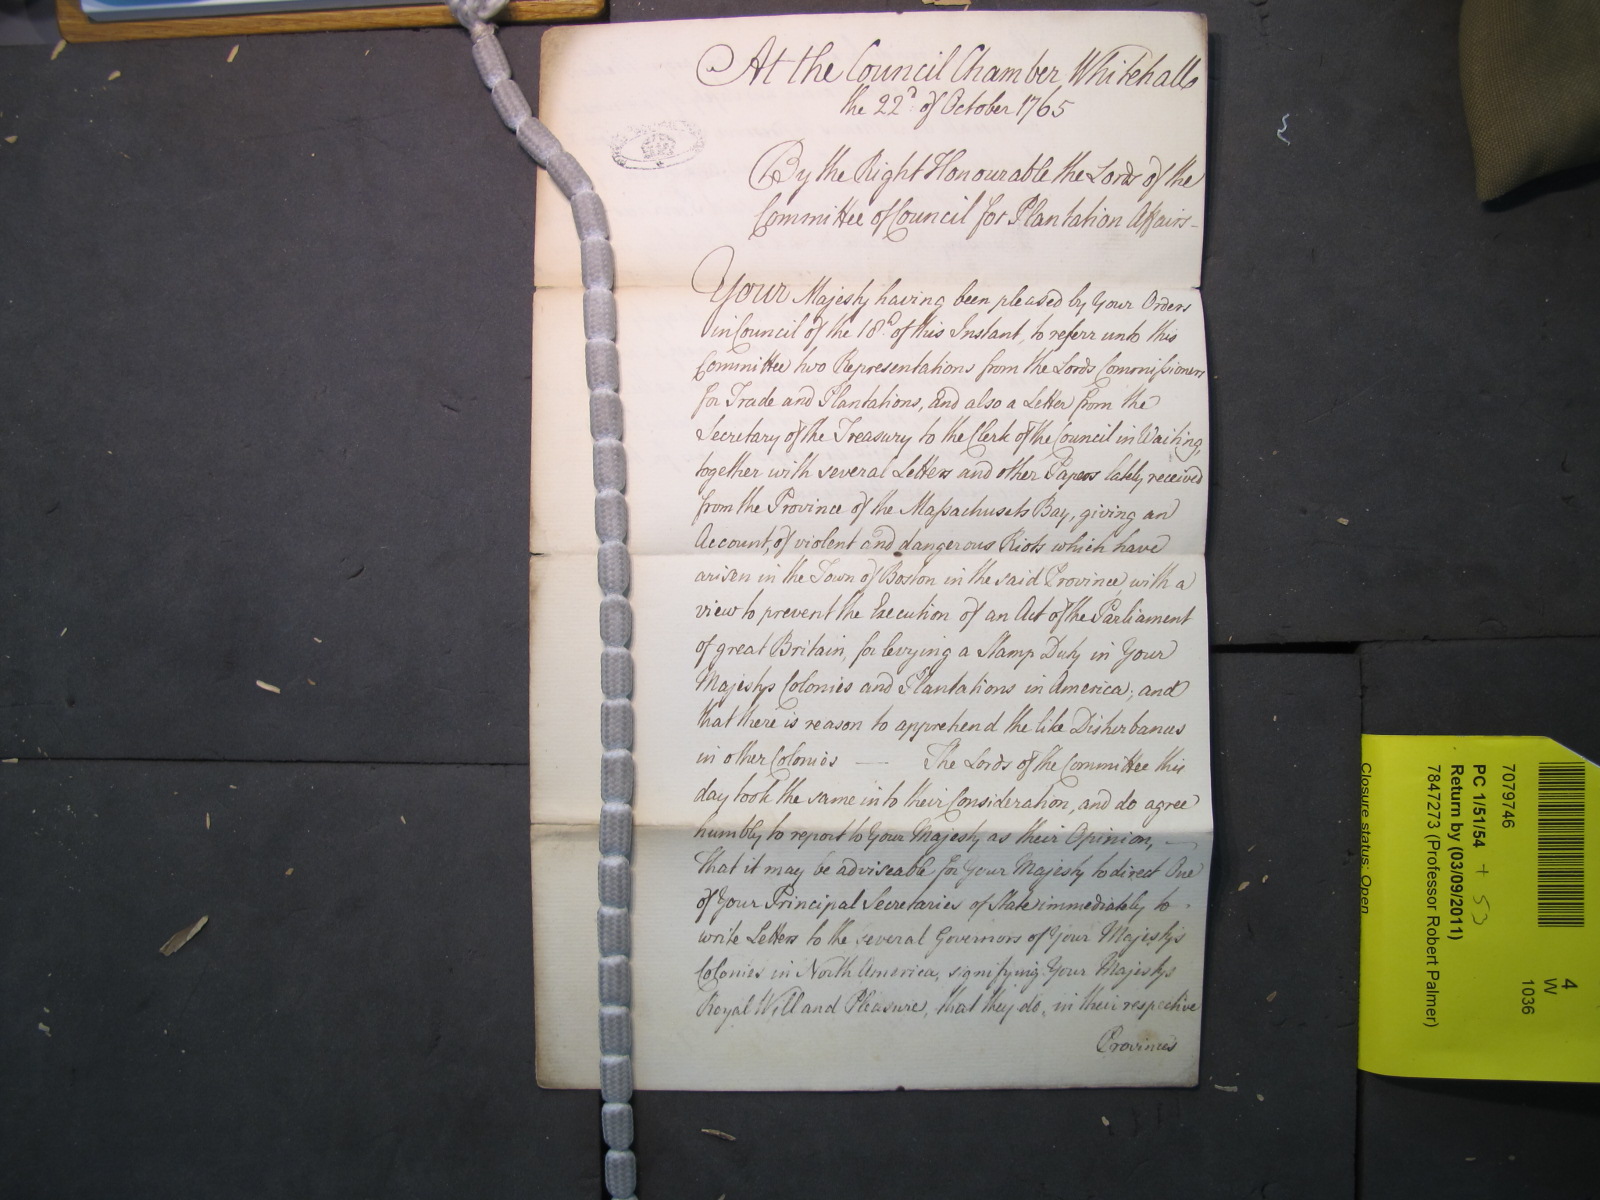 At the Council Chamber Whitehall
the 22d. of October 1765
By the Right Honourable the Lords of the
Committee of Council for Plantation Affairs-
Your Majesty having been pleased by Your Orders
in Council of the 18d of this Instant, to referr unto this
Committee two Representations from the Lords Commissioners
for Trade and Plantations, and also a Letter from the
Secretary of the Treasury to the Clerk of the Council in Waiting,
together with several Letters and other Papers lately received
from the Province of the Massachusets Bay, giving an
Account, of violent and dangerous Riots which have
arisen in the Town of Boston in the said Province, with a
view to prevent the Execution of an Act of the Parliament
of great Britain, for levying a Stamp Duty in Your
Majestys Colonies and Plantations in America; and
that there is reason to apprehend the like Disturbances
in other Colonies — The Lords of the Committee this
day took the same into their Consideration, and do agree
humbly to report to Your Majesty as their Opinion, —
that it may be adviseable for Your Majesty to direct One
of Your Principal Secretaries of State immediately to -
write Letters to the several Governors of Your Majesty's
Colonies in North America, signifying Your Majestys
Royal Will and Pleasure, that they do, in their respective
Provinces
4
W
1036
7079746
PC 1/51/54 + 53
Return by (03/09/2011)
7847273 (Professor Robert Palmer)
Closure status: Open